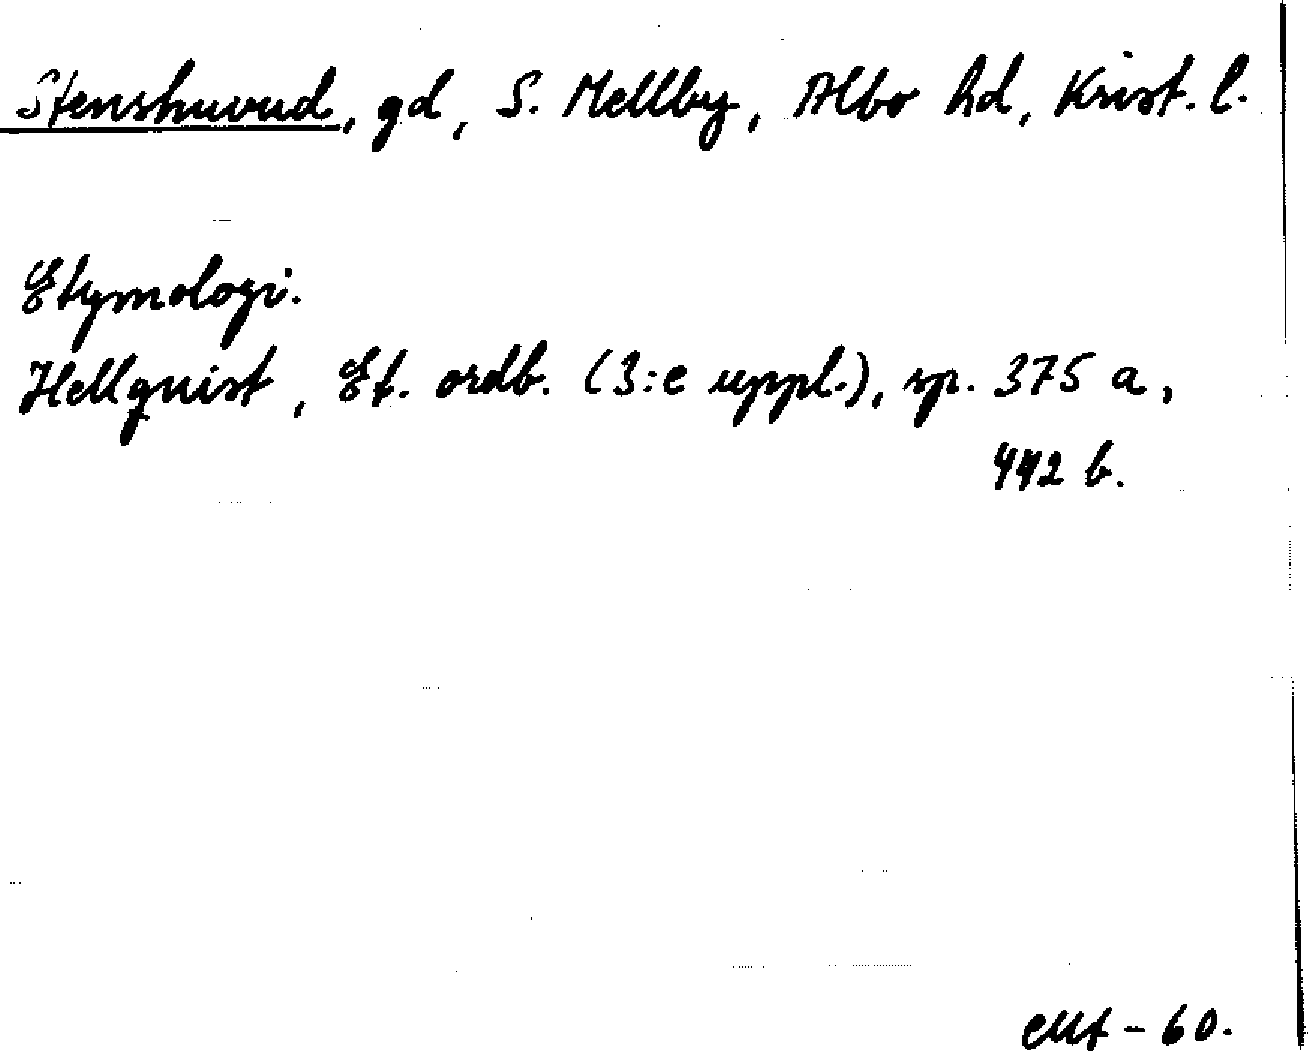 Stenshuvud, gd, S. Mellby, Albo hd, Krist. l.
Etymologi.
Hellquist, Et. ordb. (3:e uppl.), sp. 375 a,
442 b.
- 60.